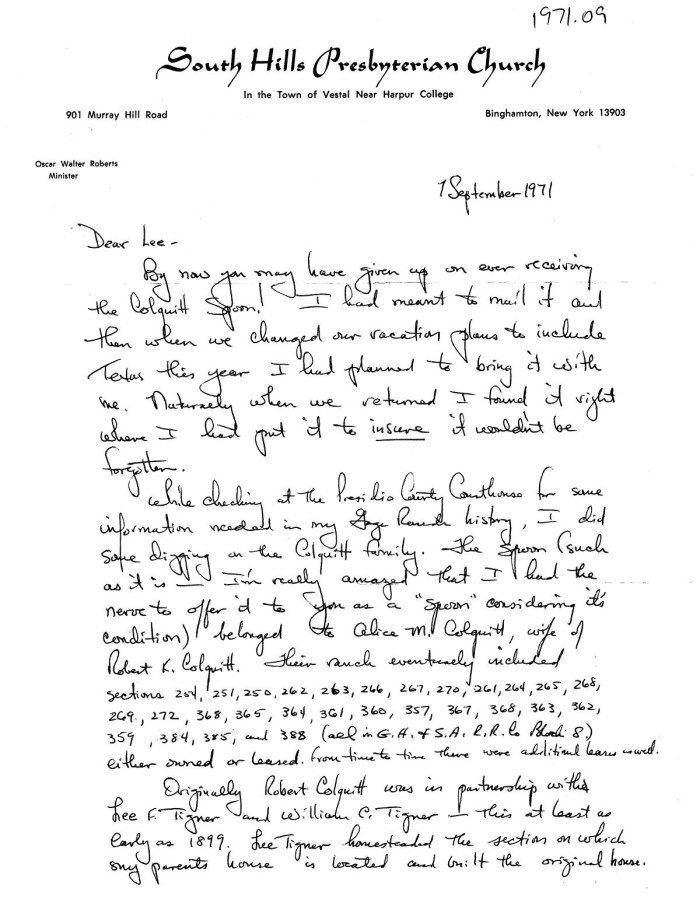 1971.09
South Hills Presbyterian Church
In the Town of Vestal Near Harpur College
901 Murray Hill Road
Binghamton, New York 13903
Oscar Walter Roberts
Minister
7 September 1971
Dear Lee -
By now you may have given up on ever receiving
the Colquitt Spoon! I had meant to mail it and
then when we changed our vacation plans to include
Texas this year I had planned to bring it with
me. Naturally when we returned I found it right
where I had put it to insure it wouldn't be
forgotten.
While checking at the Presidio County Courthouse for some
information needed in my Gage Ranch history, I did
some digging on the Colquitt family. The Spoon (such
as it is — I'm really amazed that I had the
nerve to offer it to you as a "spoon" considering it's
condition) belonged to Alice M. Colquitt, wife of
Robert K. Colquitt. Their ranch eventually included
sections 254, 251, 250, 262, 263, 266, 267, 270, 261, 264, 265, 268,
269, 272, 368, 365, 364, 361, 360, 357, 367, 368, 363, 362,
359, 384, 385, and 388 (all in G.H. & S.A. R.R. Co Block 8)
either owned or leased. From time to time there were additional leases as well.
Originally Robert Colquitt was in partnership with
Lee F. Tigner and William C. Tigner — this at least as
early as 1899. Lee Tigner homesteaded the section on which
my parents house is located and built the original house.